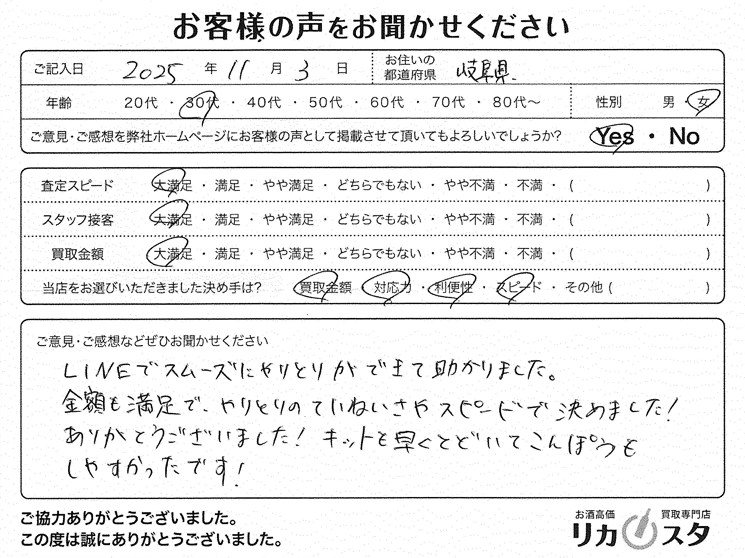 お客様の声をお聞かせください
ご記入日 2025 年 11 月 3 日 お住いの都道府県 岐阜県
年齢 20代・30代・40代・50代・60代・70代・80代～ 性別 男・女
ご意見・ご感想を弊社ホームページにお客様の声として掲載させて頂いてもよろしいでしょうか？ Yes・No
査定スピード 大満足・満足・やや満足・どちらでもない・やや不満・不満・( )
スタッフ接客 大満足・満足・やや満足・どちらでもない・やや不満・不満・( )
買取金額 大満足・満足・やや満足・どちらでもない・やや不満・不満・( )
当店をお選びいただきました決め手は？ 買取金額・対応力・利便性・スピード・その他 ( )
ご意見・ご感想などぜひお聞かせください
LINEでスムーズにやりとりができて助かりました。
金額も満足で、やりとりのていねいさやスピードで決めました！
ありがとうございました！ キットも早くとどいてこんぽうも
しやすかったです！
ご協力ありがとうございました。
この度は誠にありがとうございました。
お酒高価 買取専門店
リカスタ